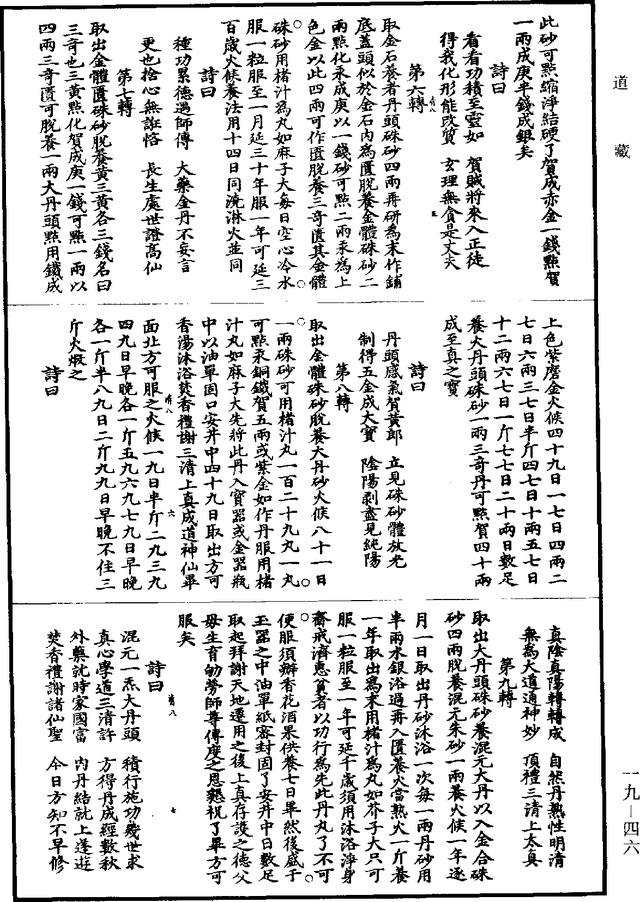 道藏
此砂可點縮淨結硬了賀成赤金一錢點賀
一兩成庚半錢成銀矣
詩曰
看看功積至靈如　賀賊將來入正徒
得我化形能改質　玄理無貪是丈夫
第六轉
取金石養者丹頭硃砂四兩再研爲末作鋪
底蓋頭似於金石內爲匱脫養金體硃砂二
兩點化汞成庚以一錢砂可點二兩汞爲上
色金以此四兩可作匱脫養三奇匱其金體
硃砂用楮汁爲丸如麻子大每日空心冷水
服一粒服至一月延三十年服一年可延三
百歲火候養法用十四日同澆淋火並同
詩曰
種功累德遇師傳　大藥金丹不妄言
更也捨心無誑悋　長生處世證高仙
第七轉
取出金體匱硃砂脫養黃三黃各三錢名曰
三奇也三黃點化賀成庚一錢可點一兩以
四兩三奇匱可脫養一兩大丹頭點用鐵成
上色紫磨金火候四十九日一七日四兩二
七日六兩三七日半斤四七日十兩五七日
十二兩六七日一斤七七日二十兩日數足
養大丹頭硃砂一兩三奇丹可點賀四十兩
成至真之寶
詩曰
丹頭感氣賀黃郎　立見硃砂體放光
制得五金成大寶　陰陽剥盡見純陽
第八轉
取出金體硃砂脫養大丹砂火候八十一日
一兩硃砂可用楮汁丸一百二十九丸一丸
可點汞銅鐵賀五兩或紫金如作丹服用楮
汁丸如麻子大先將此丹入寶器或金器瓶
中以油單固口安井中四十九日取出方可
香湯沐浴焚香禮謝三清上真成道神仙畢
面北方可服之火候一九日半斤二九三九
四九日早晚各一斤五九六九七九日早晚
各一斤半八九日二斤九九日早晚不住三
斤火煅之
詩曰
真陰真陽轉轉成　自然丹熟性明清
無爲大道通神妙　頂禮三清上太真
第九轉
取出大丹頭硃砂養混元大丹以入金合硃
砂四兩脫養混元朱砂一兩養火候一年逐
月一日取出丹砂沐浴一次每一兩丹砂用
半兩水銀浴過再入匱養火當熟火一斤養
一年取出爲末用楮汁爲丸如芥子大只可
服一粒服至一年可延千歲須用沐浴淨身
齋戒濟惠貧者以功行爲先此丹丸了不可
便服須辦香花酒果供養七日畢然後盛子
玉器之中油單紙密封固了安井中日數足
取起拜謝天地還用之後上真存護之德父
母生育劬勞師尊傳度之恩懇祝了畢方可
服矣
詩曰
混元一炁大丹頭　積行施功幾世求
真心學道三清許　方得丹成經數秋
外藥就時家國富　內丹結就上蓬遊
焚香禮謝諸仙聖　今日方知不早修
一九—四六